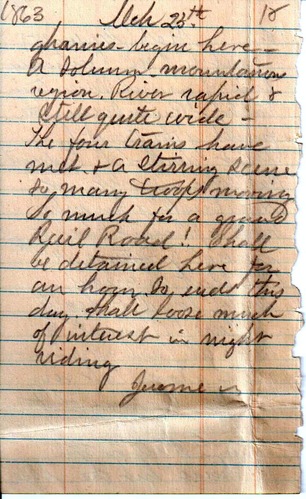 1863 Mch 25th 12
ghanies begin here -
A solumn mountainous
region. River rapid &
still quite wide -
The four trains have
met & a stirring scene
so many troops moving
So much for a grand
Rail Road! Shall
be detained here for
an hour. So ends this
day. Shall loose much
of interest in night
riding
Jerome